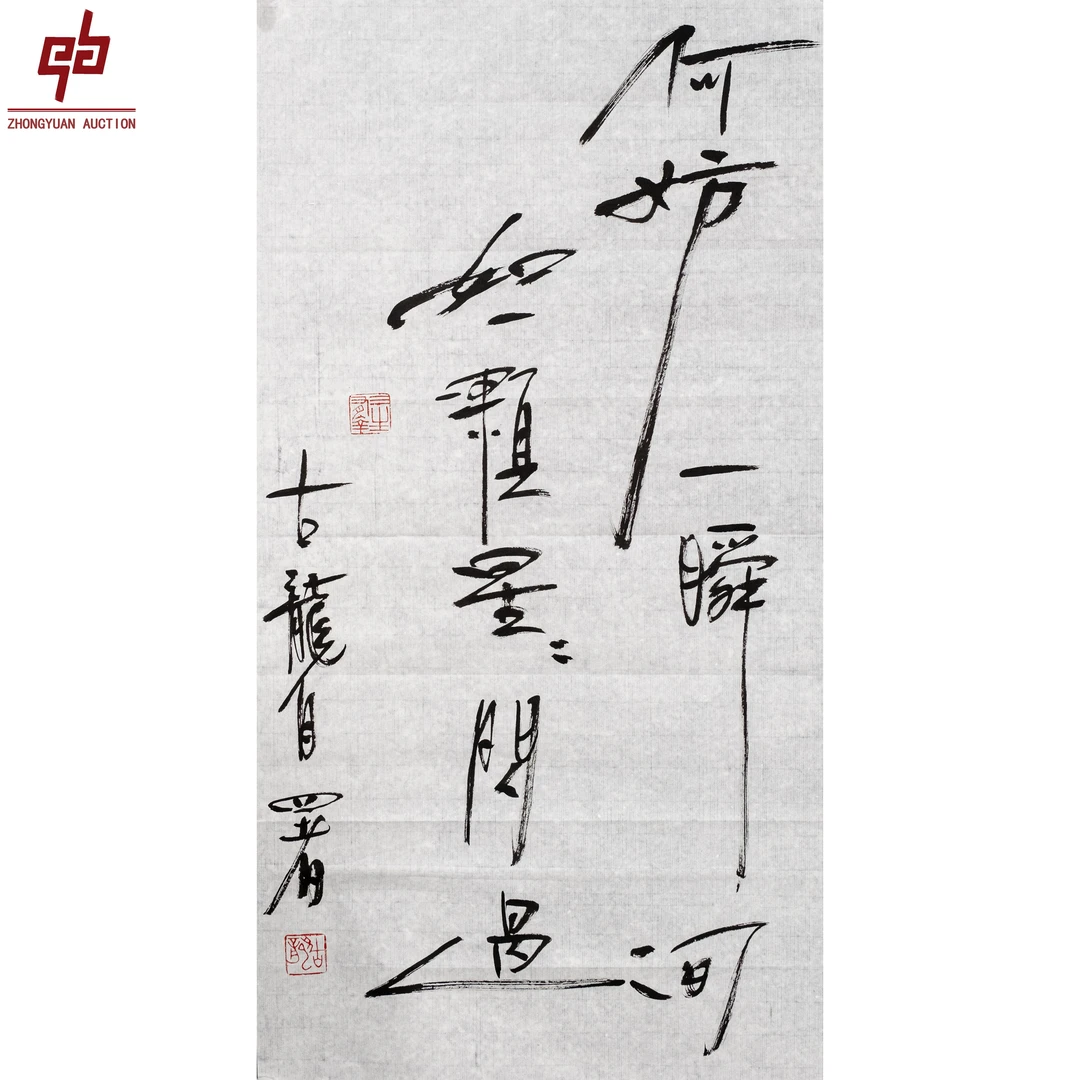 ZHONGYUAN AUCTION
何妨一瞬間
如顆星〻閃過
古龍自署
古龍